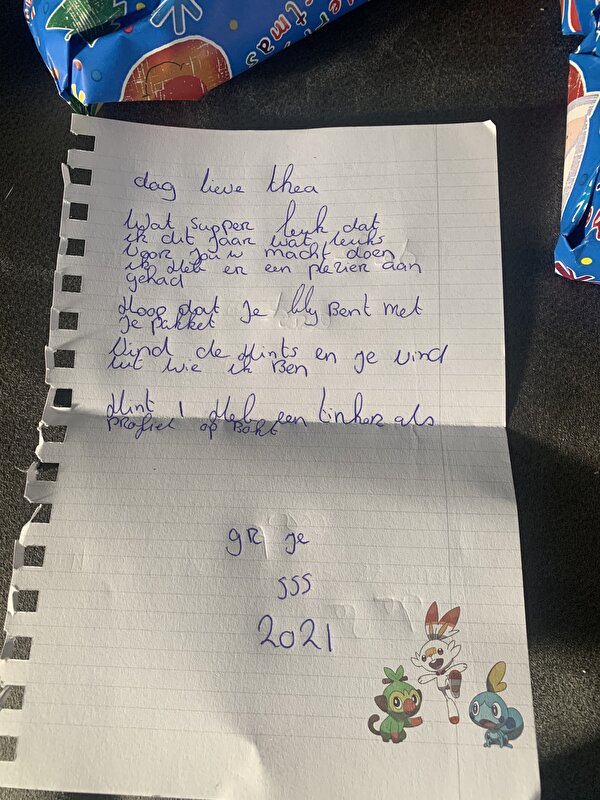 dag lieve thea
Wat supper leuk dat
ik dit jaar wat leuks
voor jouw macht doen
ik Heb er een plezier aan
gehad
Hoop dat je bly Bent met
je pakket
Vind de Hints en je vind
uit wie ik Ben
Hint 1 Heb een tinker als
profiel op Bokt
gr je
sss
2021